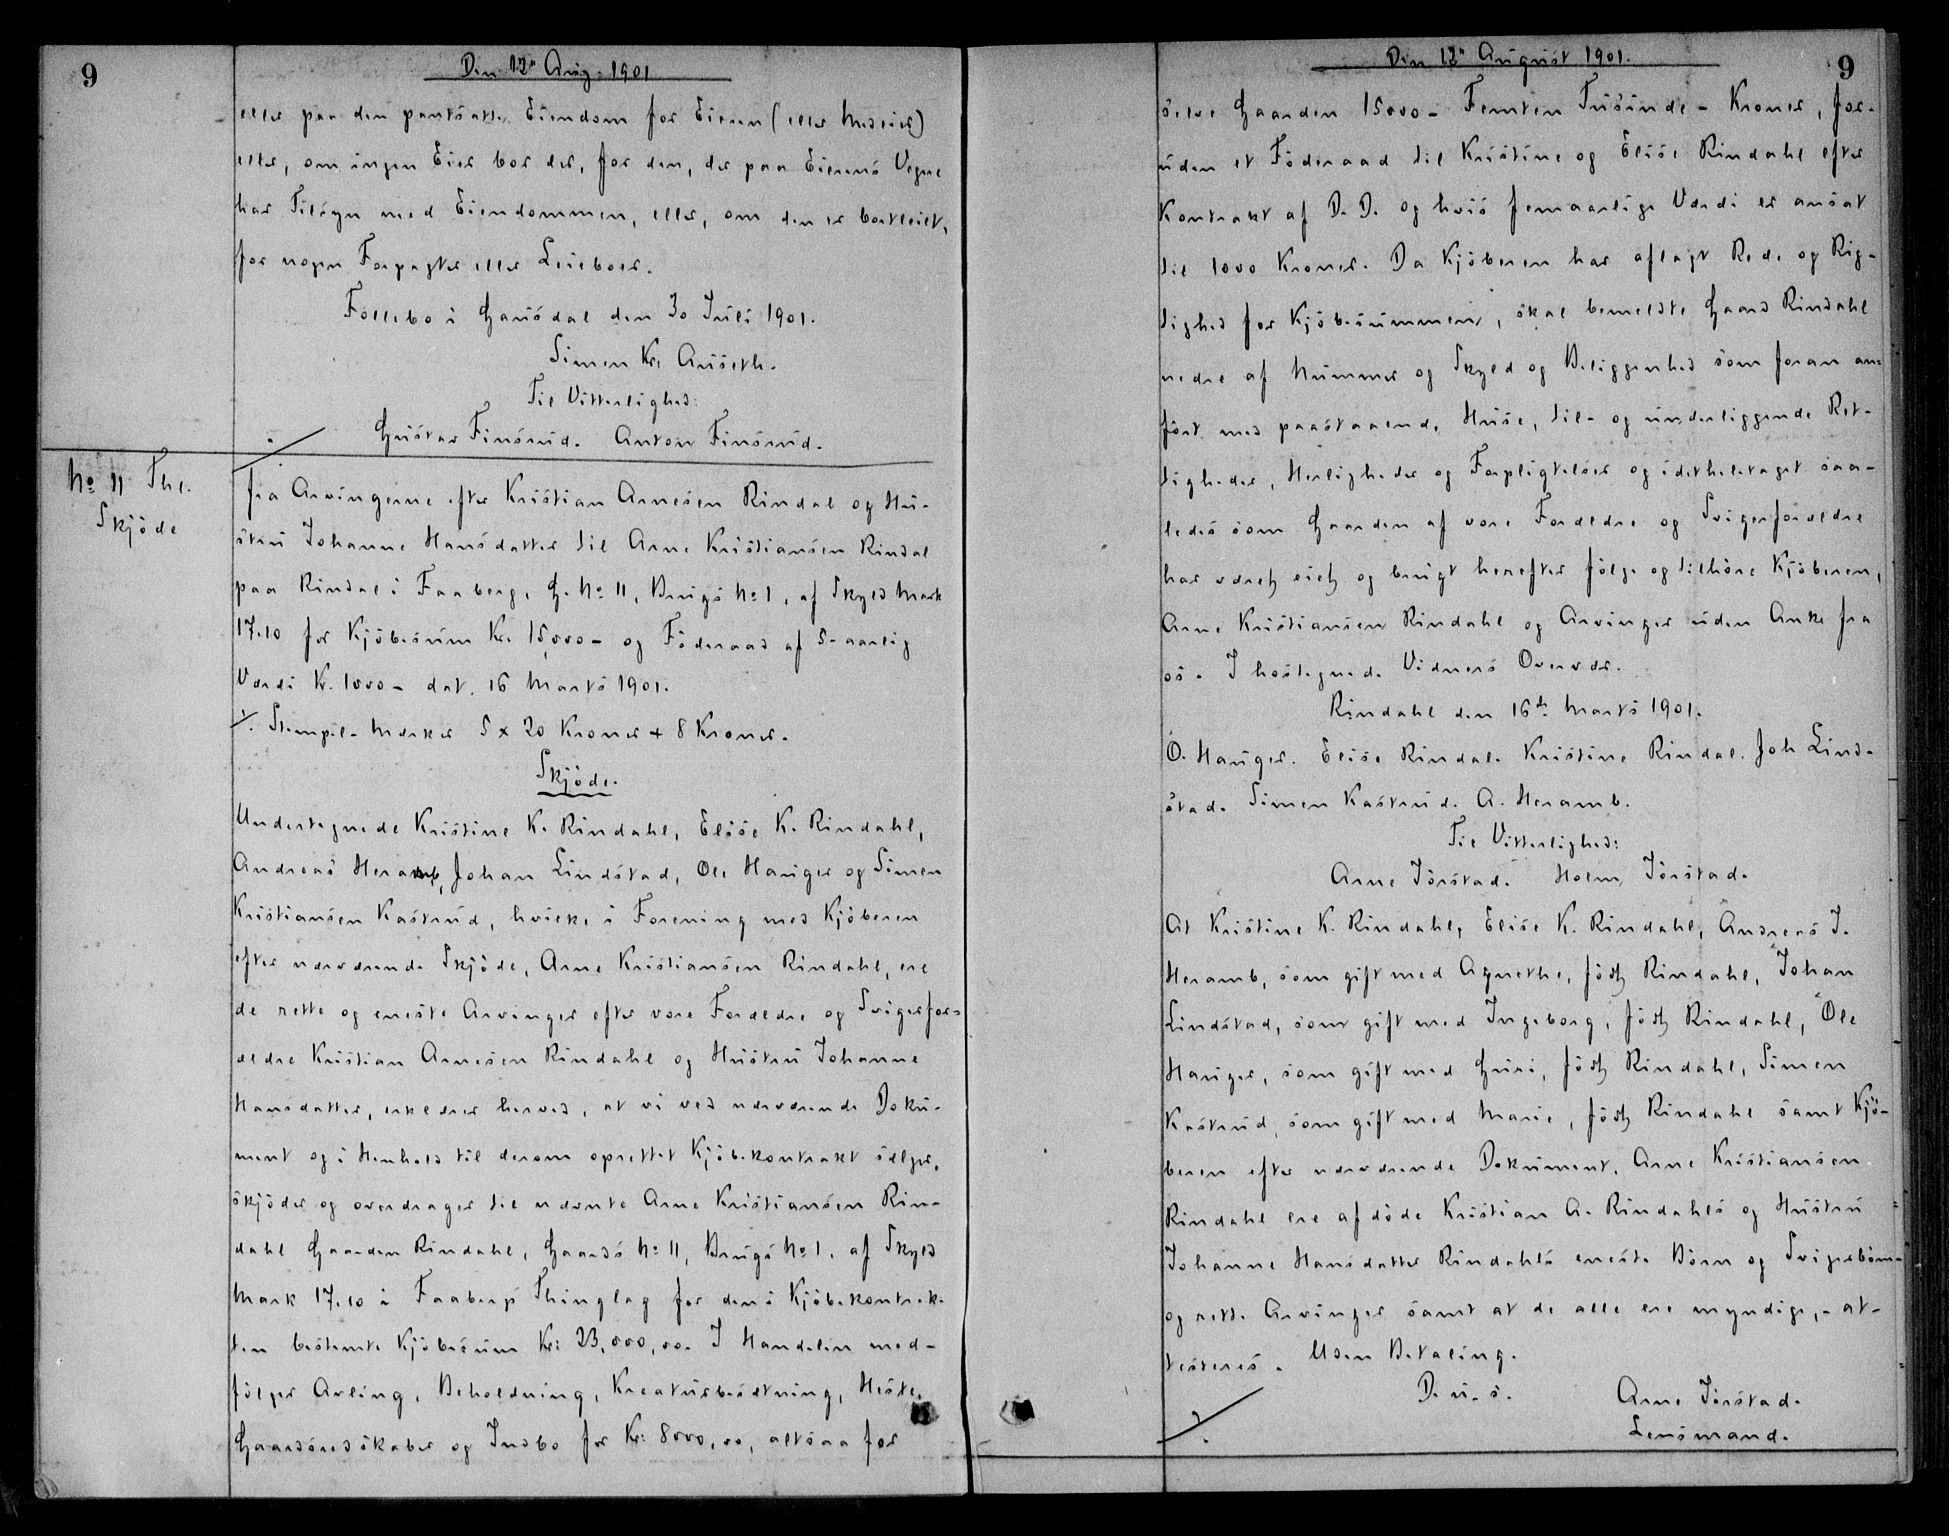 9
Den 12te Aug. 1901
eller paa den pantsatte Eiendom for Eieren (eller Medeier)
eller, om ingen Eier bor der, for den, der paa Eierens Vegne
har Tilsyn med Eiendommen, eller, om den er bortleiet,
for nogen Forpagter eller Leieboer.
Follebo i Gausdal den 30 Juli 1901.
Simen Kr. Auseth.
Til Vitterlighed:
Gustav Finsrud. Anton Finsrud.
No 11 Thl.
Skjöde
fra Arvingerne efter Kristian Arnesen Rindal og Hu-
stru Johanne Hansdatter til Arne Kristiansen Rindal
paa Rindal i Faaberg, G. No 11, Brugs No 1, af Skyld Mark
17.10 for Kjöbesum Kr. 15,000- og Föderaad af 5-aarlig
Værdi Kr. 1000- dat. 16 Marts 1901.
./. Stempel-Mærker 5 x 20 Kroner + 8 Kroner.
Skjöde.
Undertegnede Kristine K. Rindahl, Elise K. Rindahl,
Andreas Heramb, Johan Lindstad, Ole Hauger og Simen
Kristiansen Kastrud, hvilke i Forening med Kjöberen
efter nærværende Skjöde, Arne Kristiansen Rindahl, ere
de rette og eneste Arvinger efter vore Forældre og Svigerfor=
ældre Kristian Arnesen Rindahl og Hustru Johanne
Hansdatter, erklærer herved, at vi ved nærværende Doku-
ment og i Henhold til derom oprettet Kjöbekontrakt sælger,
skjöder og overdrager til nævnte Arne Kristiansen Rin-
dahl Gaarden Rindahl, Gaards No 11, Brugs No 1, af Skyld
Mark 17.10 i Faabergs Thinglag for den i Kjöbekontrak-
ten bestemte Kjöbesum Kr: 23,000,00. I Handelen med-
fölger Avling, Beholdning, Kreaturbesætning, Heste,
Gaardsredskaber og Indbo for Kr: 8000,00, altsaa for
Den 12te August 1901.
9
selve Gaarden 15000- Femten Tusinde - Kroner, for-
uden et Föderaad til Kristine og Elise Rindahl efter
Kontrakt af D. D. og hvis femaarlige Værdi er ansat
til 1000 Kroner. Da Kjöberen har aflagt Rede og Rig-
tighed for Kjöbesummen, skal bemeldte Gaard Rindahl
nedre af Nummer og Skyld og Beliggenhed som foran an=
fört med paastaaende Huse, til- og underliggende Ret-
tigheder, Herligheder og Forpligtelser og idethele taget saa-
ledes som Gaarden af vore Forældre og Svigerforældre
har været eiet og brugt herefter fölge og tilhöre Kjöberen,
Arne Kristiansen Rindahl og Arvinger uden Anke fra
os. I hostegnede Vidners Overvær.
Rindahl den 16de Marts 1901.
O. Hauger. Elise Rindal. Kristine Rindal. Joh Lind-
stad. Simen Kastrud. A. Heramb.
Til Vitterlighed:
Arne Jörstad. Holm Jörstad.
At Kristine K. Rindahl, Elise K. Rindahl, Andreas J.
Heramb, som gift med Agnethe, födt Rindahl, Johan
Lindstad, som gift med Ingeborg, födt Rindahl, Ole
Hauger, som gift med Guri, födt Rindahl, Simen
Kastrud, som gift med Marie, födt Rindahl samt Kjö-
beren efter nærværende Dokument, Arne Kristiansen
Rindahl ere afdöde Kristian A. Rindahls og Hustru
Johanne Hansdatter Rindahls eneste Börn og Svigerbörn-
og rette Arvinger samt at de alle ere myndige, - at-
testeres. Uden Betaling.
D. u. s. Arne Jörstad.
Lensmand.